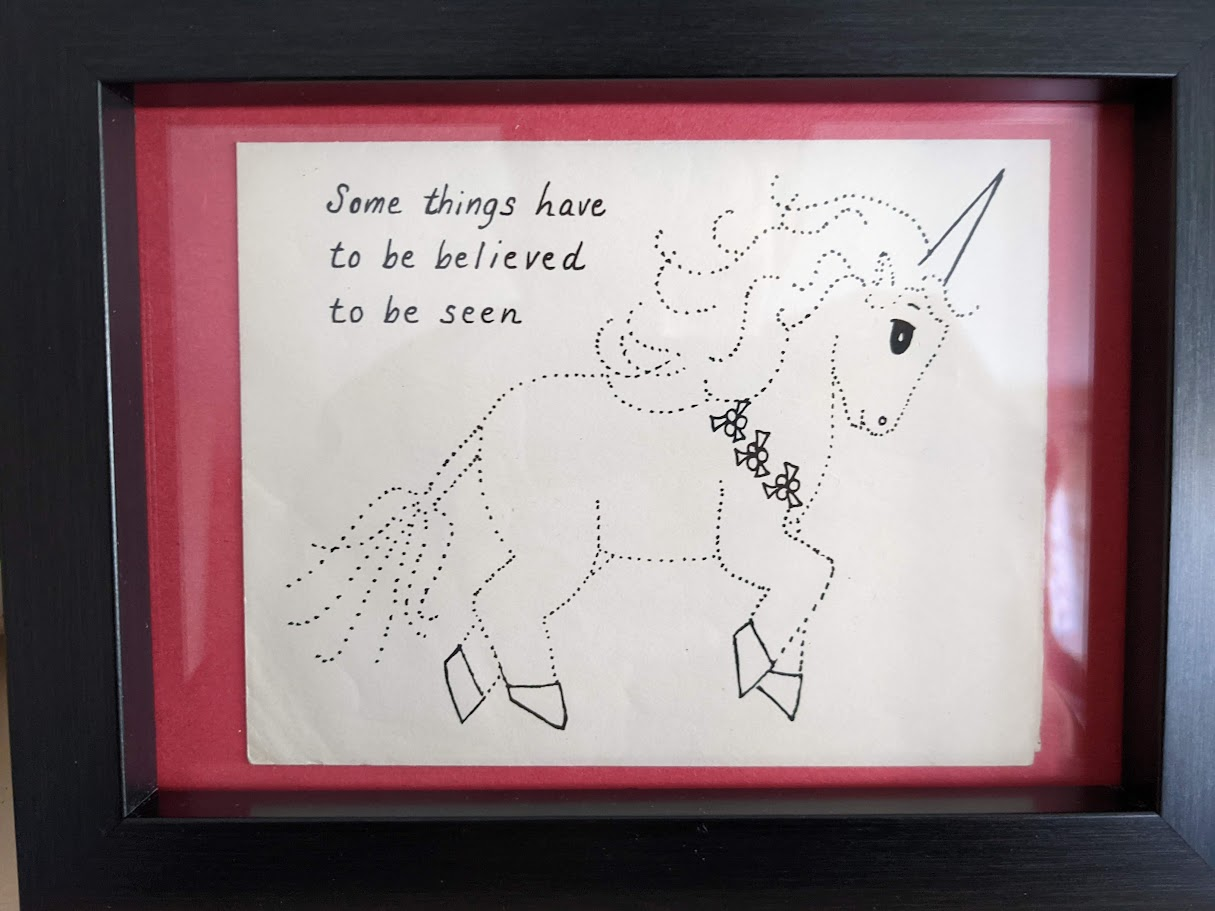 Some things have
to be believed
to be seen